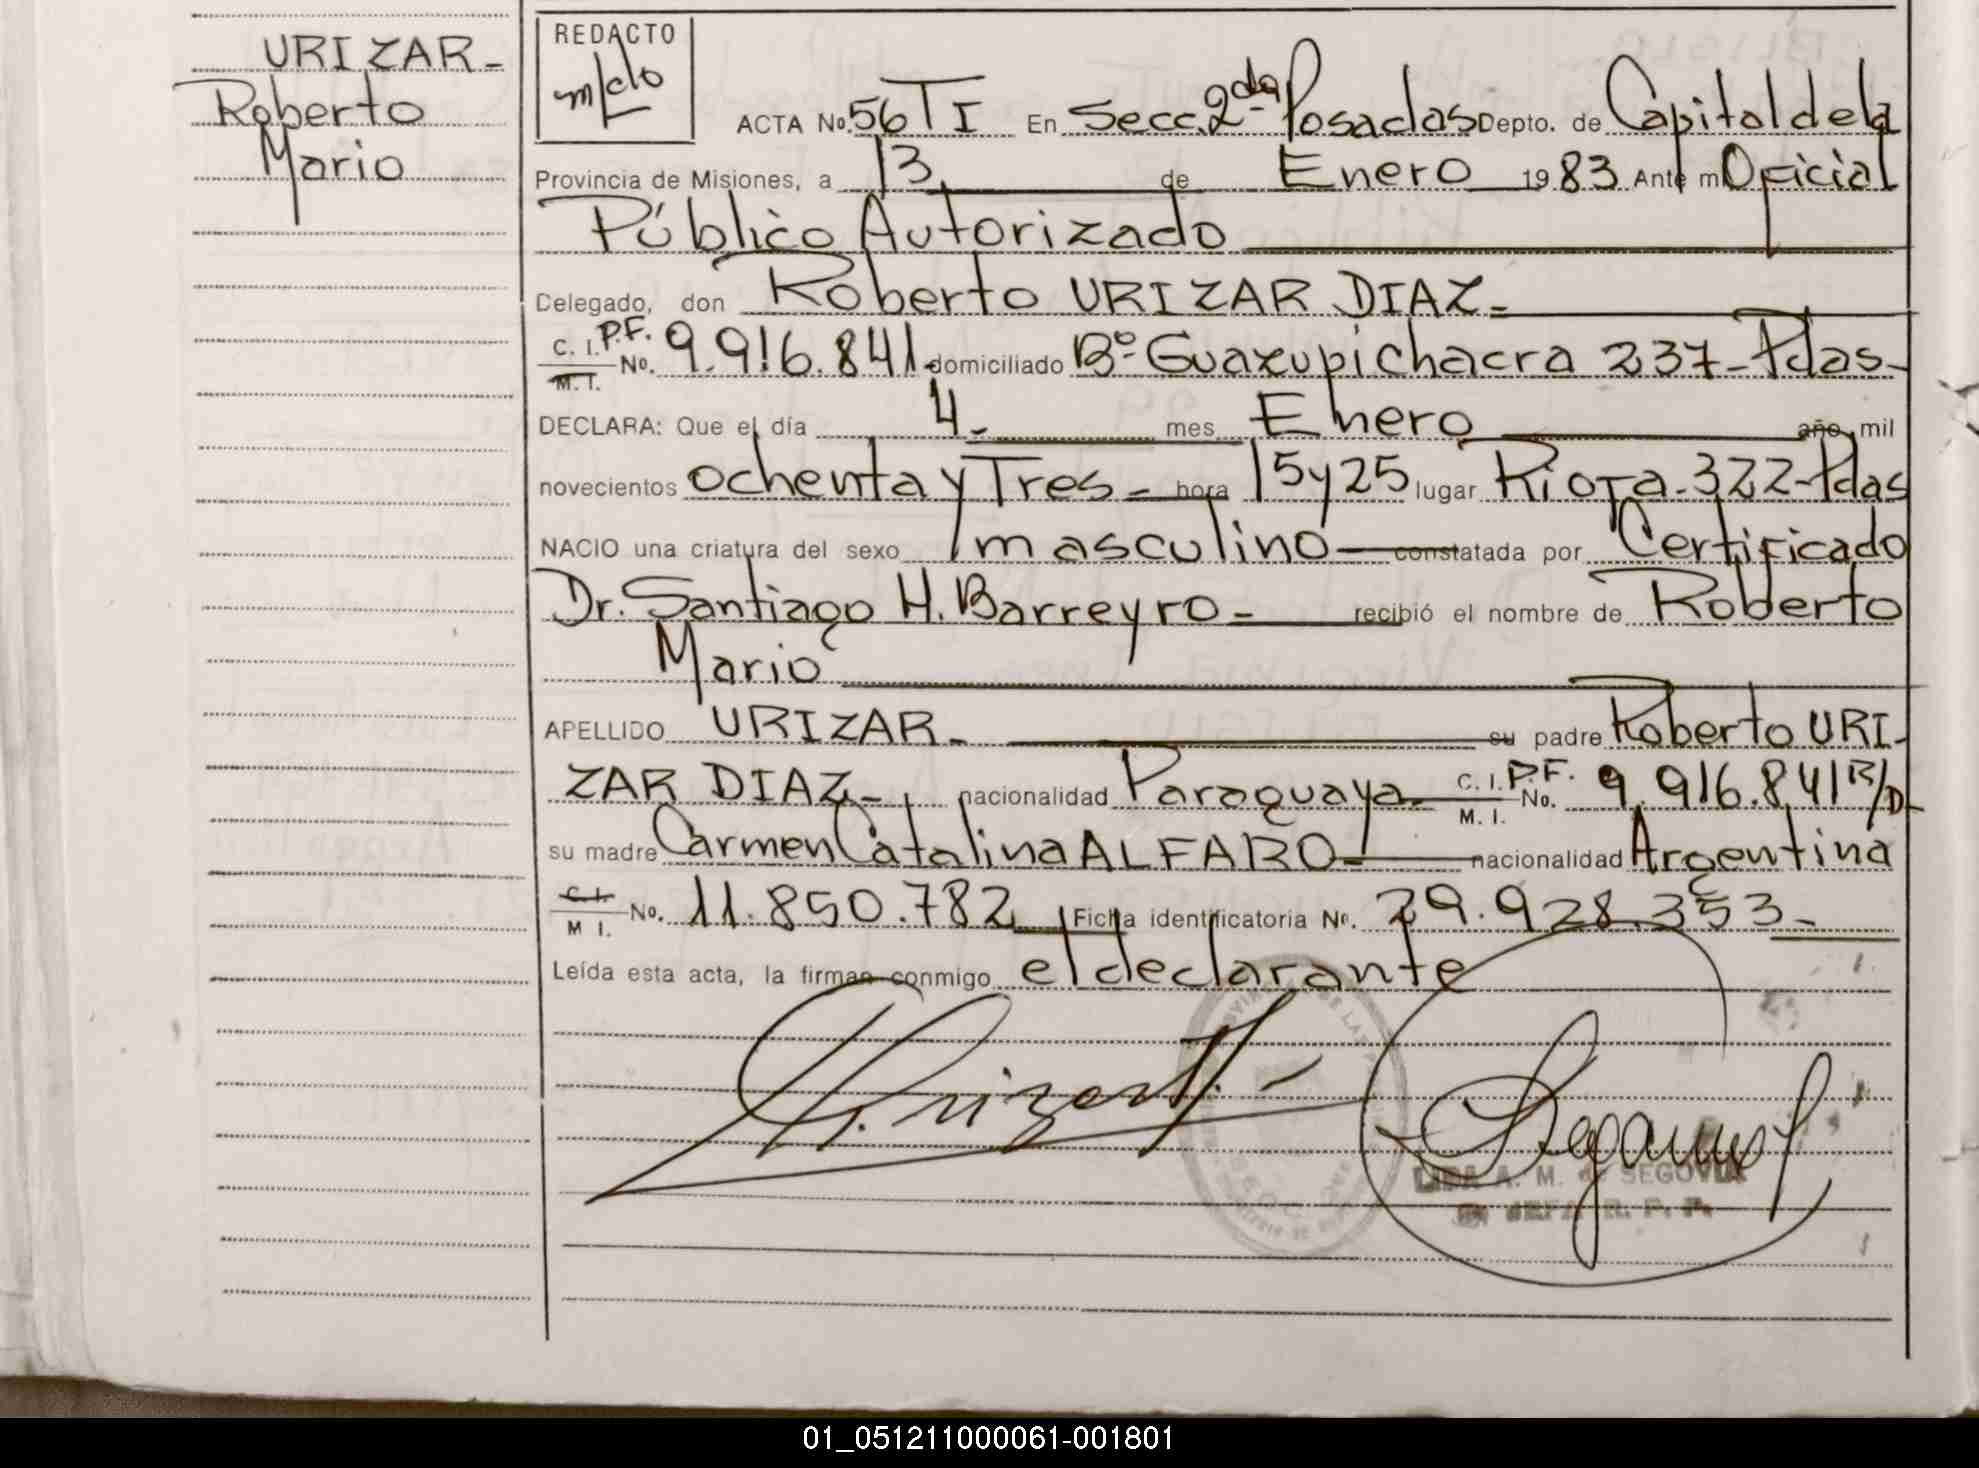 URIZAR-
Roberto
Mario
REDACTO
ACTA No. 56 T I En Secc. 2da Posadas Depto. de Capital de la
Provincia de Misiones, a 13 de Enero 1983 Ante mi Oficial
Público Autorizado
Delegado, don Roberto URIZAR DIAZ-
C. I. P.F. M. I. No. 9.916.841 domiciliado Bº Guazupi chacra 237-Pdas-
DECLARA: Que el día 4- mes Enero año mil
novecientos ochenta y Tres- hora 15 y 25 lugar Rioja-322-Pdas
NACIO una criatura del sexo masculino constatada por Certificado
Dr. Santiago H. Barreyro- recibió el nombre de Roberto
Mario
APELLIDO URIZAR- su padre Roberto URI-
ZAR DIAZ- nacionalidad Paraguaya- C. I. P.F. M. I. No. 9.916.841 R/D-
su madre Carmen Catalina ALFARO- nacionalidad Argentina
C. I. M I. No. 11.850.782 Ficha identificatoria No. 29.928.353-
Leída esta acta, la firman conmigo el declarante
LIDA A. M. de SEGOVIA
JEFA R. P. P.
01_051211000061-001801